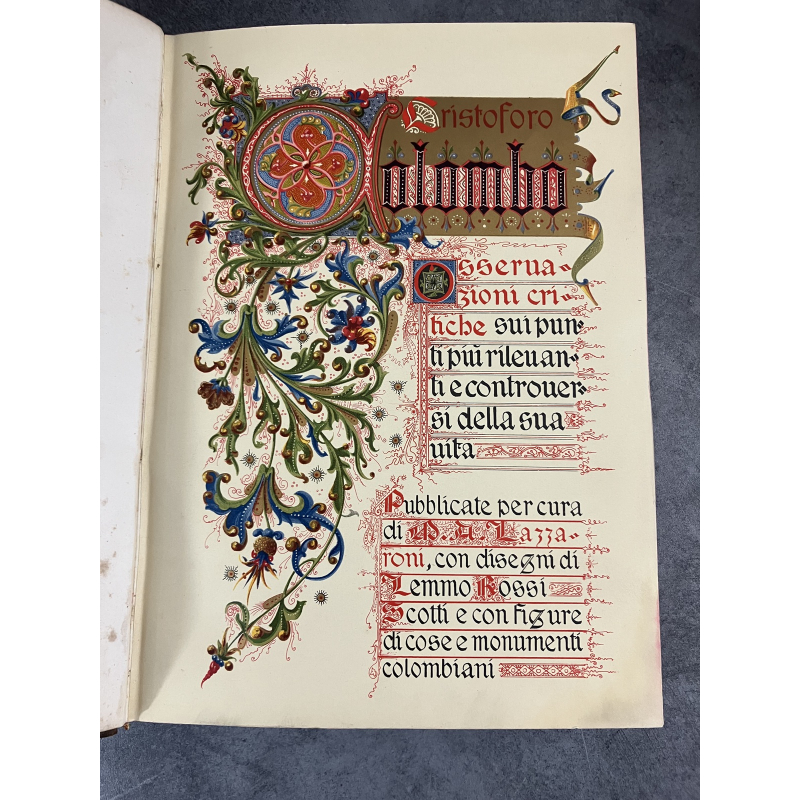 Cristoforo
Colombo
Osserva-
zioni cri-
tiche sui pun-
ti più rilevan-
ti e controver-
si della sua
vita
Pubblicate per cura
di M. A. Lazza-
roni, con disegni di
Lemmo Rossi
Scotti e con figure
di cose e monumenti
colombiani